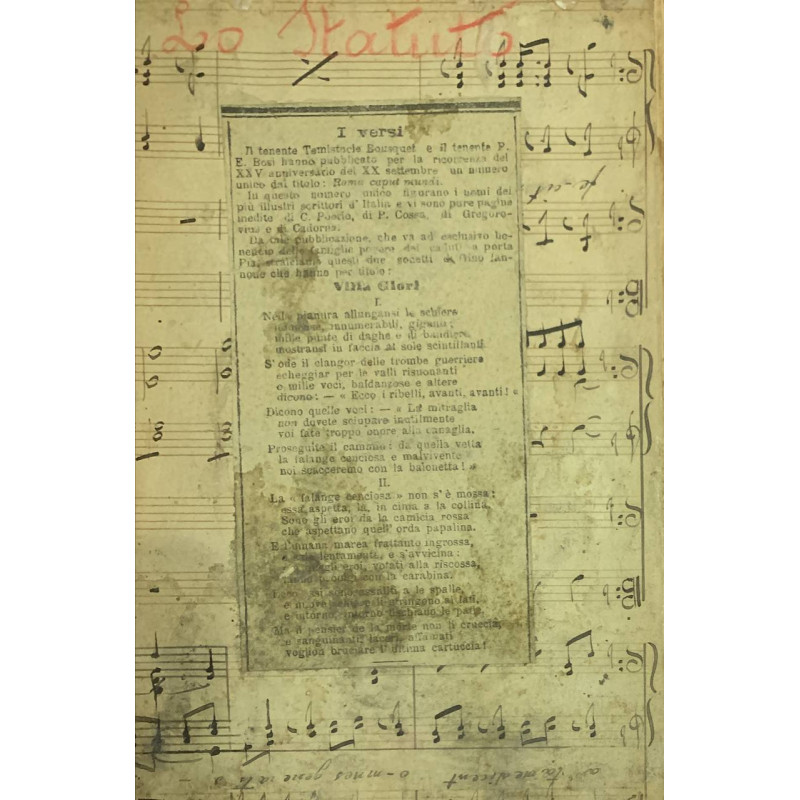 Lo Statuto
I versi
Il tenente Temistocle Bousquet e il tenente F.
E. Bosi hanno pubblicato per la ricorrenza del
XXV anniversario del XX settembre un numero
unico dal titolo: Roma caput mundi.
In questo numero unico figurano i nomi dei
più illustri scrittori d'Italia e vi sono pure pagine
inedite di C. Poerio, di P. Cossa, di Gregoro-
vius e di Cadorna.
Da tale pubblicazione, che va ad esclusivo be-
neficio delle famiglie povere dei caduti a porta
Pia, stralciamo questi due sonetti di Gino Ian-
che hanno per titolo:
Villa Glori
I.
Nella pianura allungansi le schiere
innumerabili, giganti;
mille punte di daghe e di bandiere
mostransi in faccia al sole scintillanti.
S'ode il clangor delle trombe guerriere
echeggiar per le valli risuonanti
e mille voci, baldanzose e altere
dicono: — « Ecco i ribelli, avanti, avanti! »
Dicono quelle voci: — « La mitraglia
non dovete sciupare inutilmente
voi fate troppo onore alla canaglia.
Proseguite il cammino: da quella vetta
la falange cenciosa e malvivente
noi scacceremo con la baionetta! »
II.
La « falange cenciosa » non s'è mossa:
essa aspetta, là, in cima a la collina,
Sono gli eroi da la camicia rossa
che aspettano quell'orda papalina.
E l'umana marea frattanto ingrossa,
e lentamente, e s'avvicina:
eroi, votati alla riscossa,
con la carabina.
a le spalle,
e intorno, intorno fischiano le palle.
Ma il pensier de la morte non li cruccia,
e sanguinanti, laceri, affamati
voglion bruciare l'ultima cartuccia!
je-cit
a tamedicent o-mnes gene ra ti o